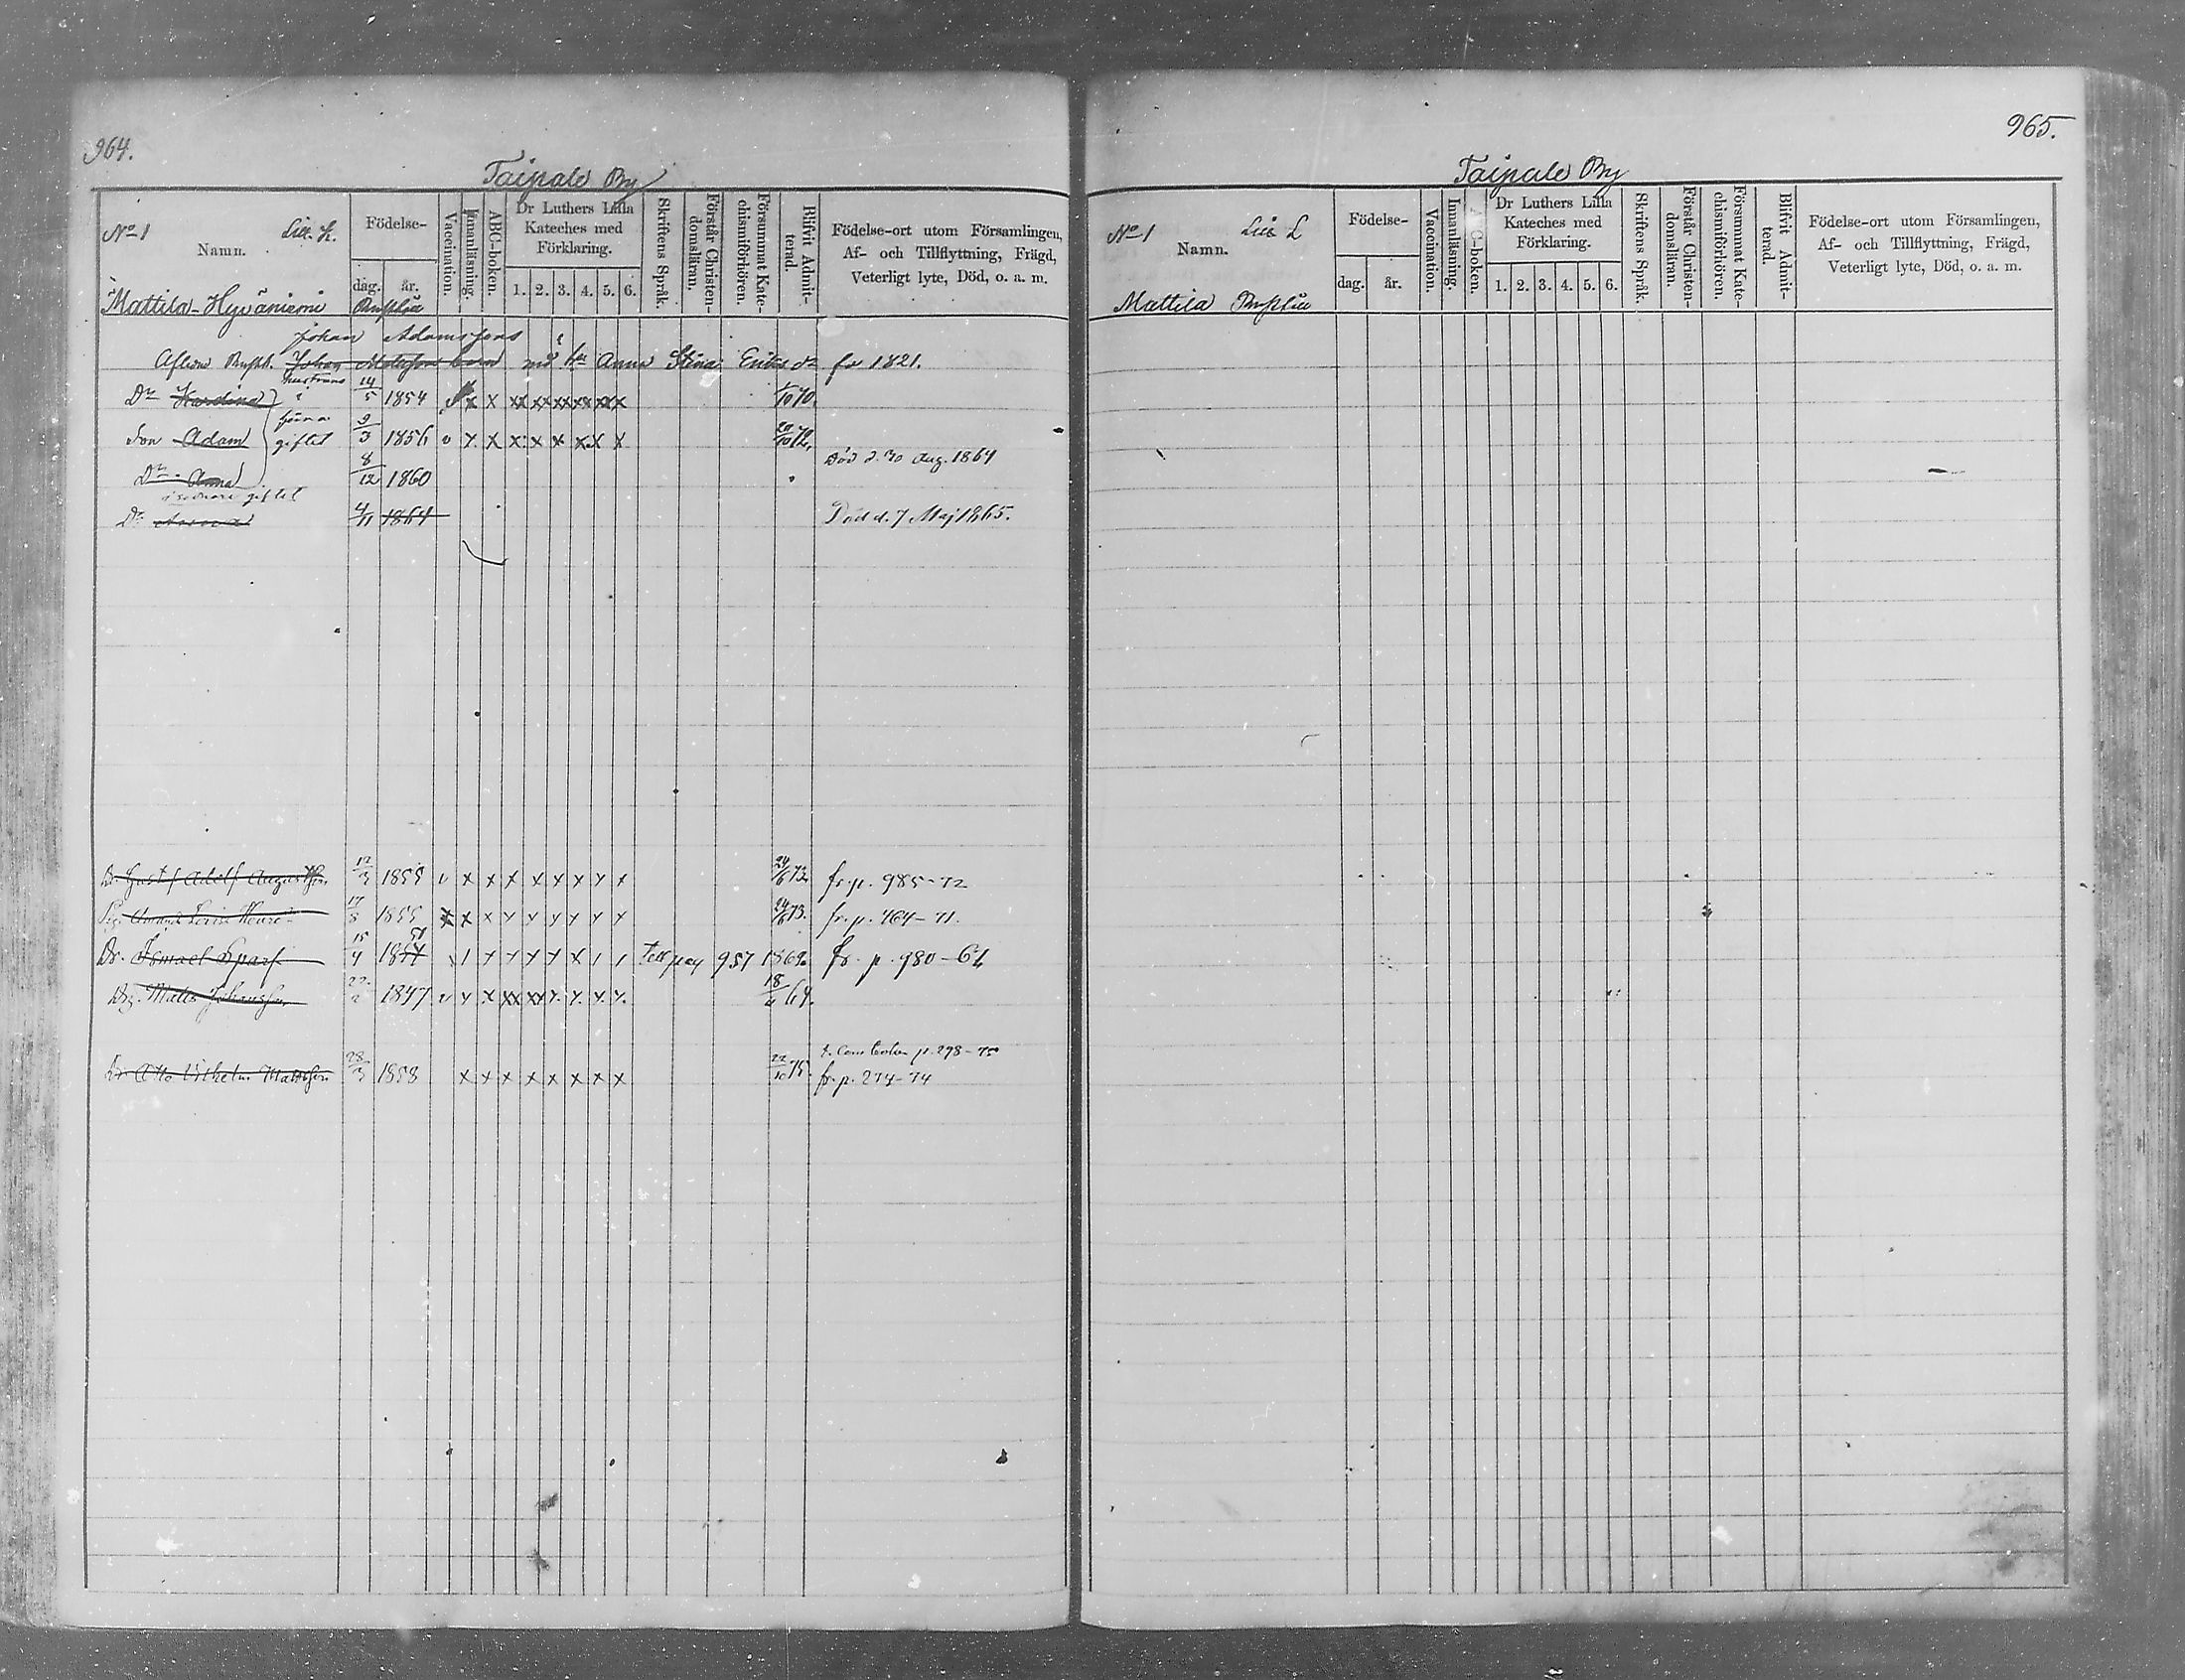 964.
Taipale By
No 1 Litt. K.
Namn.
Födelse-
dag. år.
Vaccination.
Innanläsning.
ABC-boken.
Dr Luthers Lilla Kateches med Förklaring.
1. 2. 3. 4. 5. 6.
Skriftens Språk.
Förstår Christen-domsläran.
Försummat Kate-chismiförhören.
Blifvit Admit-terad.
Födelse-ort utom Församlingen,
Af- och Tillflyttning, Frägd,
Veterligt lyte, Död, o. a. m.
Mattila-Hyväniemi
Johan Adamssons
Aflidne Johan med Anna Stina Eriks dr 1821.
hustruns
Dr Karolina i 14/5 1854 x x xx xx xx xx xx x 1/10 70.
förra
Son Adam giftet 9/3 1856 v x x x x x x x x 20/10 72.
Död d. 30 Aug. 1864
Dr Anna 8/12 1860
i sednare giftet
Dr 4/11 1864 Död d. 7 Maj 1865.
Dr. Gustaf Adolf Augustsson 12/3 1855 v x x x x x x x x 24/6 73. fr. p. 985-72
17/8 1855 x x x x x x x x x 24/6 73. fr. p. 464-71.
51
Dr. Ismael Sparf 15/4 1877 Till pag 957 1869. fr. p. 980-64
Matts Johansson 22/2 1847 v x x xx xx x x x x 18/6 64.
p. 298-75
Dr Otto Vilhelm Mattsson 28/3 1858 x x x x x x x x 22/10 75. fr. p. 274-74
965.
Taipale By
No 1 Litt L
Namn.
Födelse-
dag. år.
Vaccination.
Innanläsning.
ABC-boken.
Dr Luthers Lilla Kateches med Förklaring.
1. 2. 3. 4. 5. 6.
Skriftens Språk.
Förstår Christen-domsläran.
Försummat Kate-chismiförhören.
Blifvit Admit-terad.
Födelse-ort utom Församlingen,
Af- och Tillflyttning, Frägd,
Veterligt lyte, Död, o. a. m.
Mattila